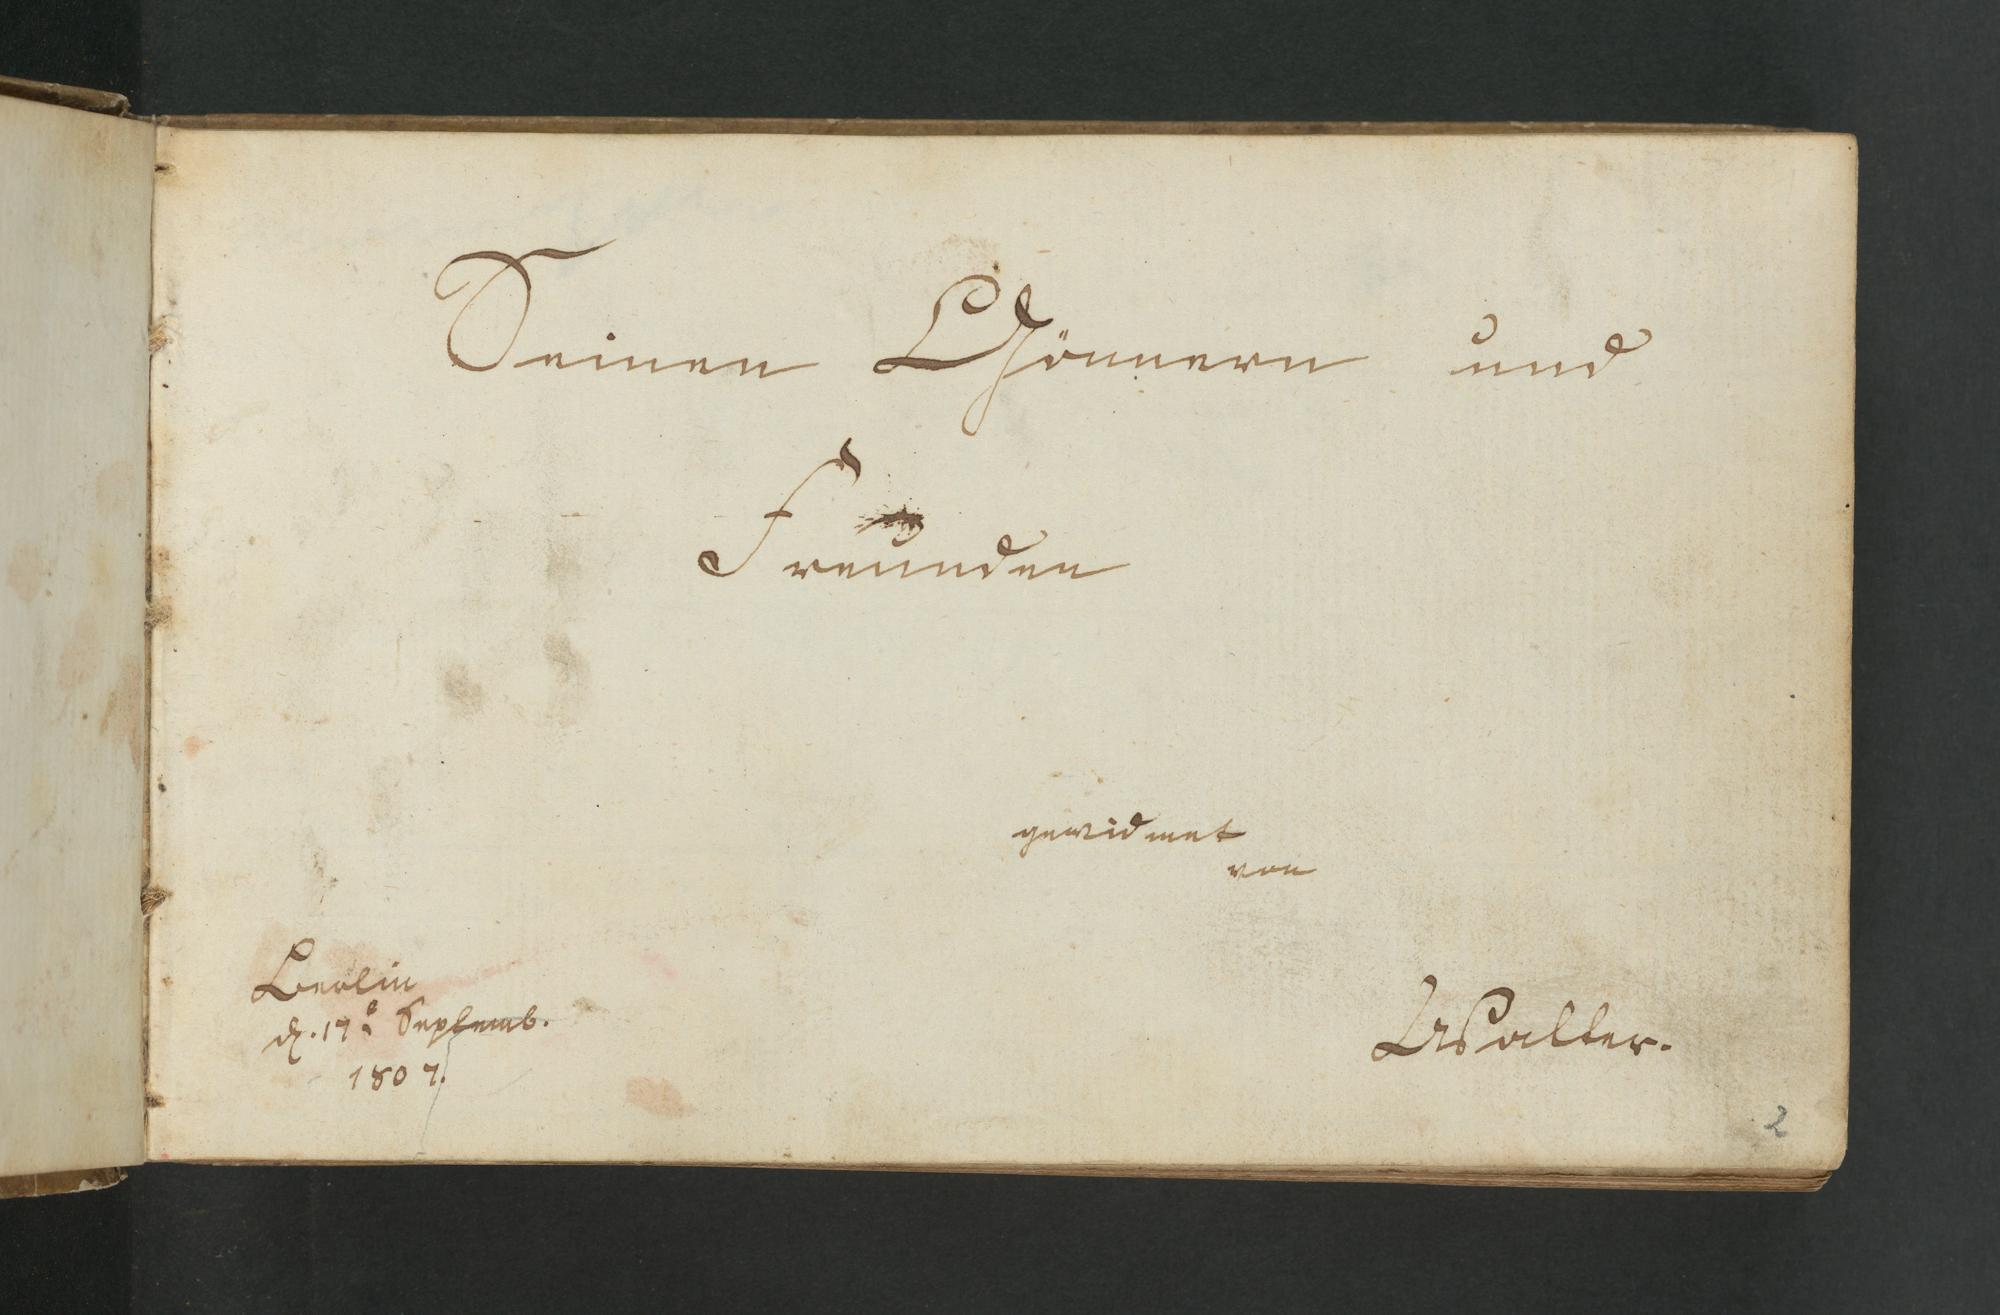 Seinen Gönnern und
Freunden
gewidmet
von
Walter.
Berlin
d. 17t Septemb.
1807.
2